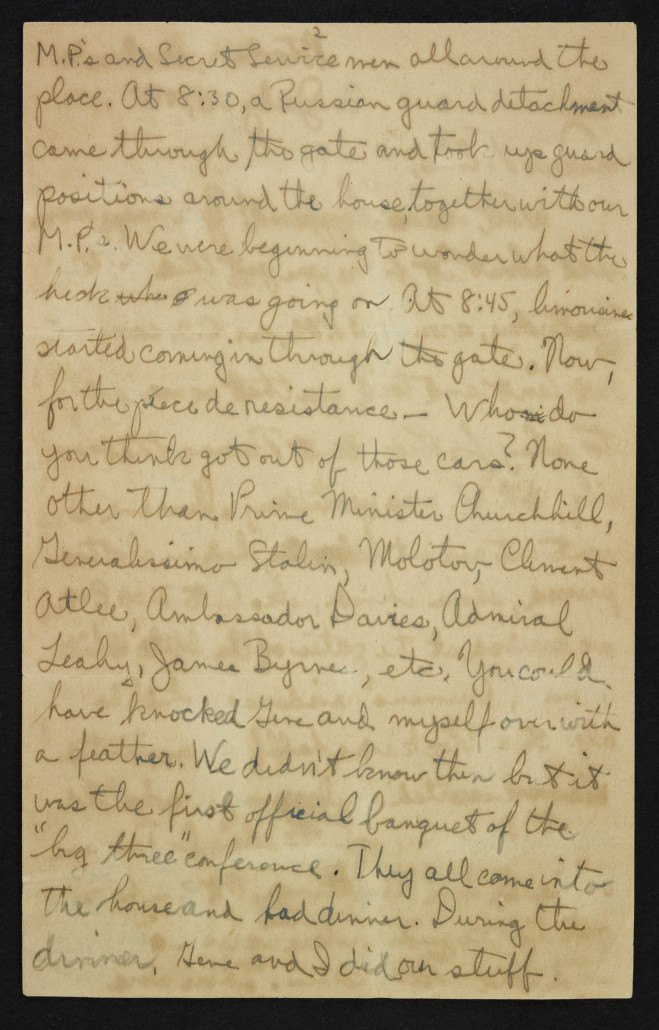 2
M.P.'s and Secret Service men all around the
place. At 8:30, a Russian guard detachment
came through the gate and took up guard
positions around the house, together with our
M.P.'s. We were beginning to wonder what the
heck was going on. At 8:45, limousines
started coming in through the gate. Now,
for the piece de resistance — Who do
you think got out of those cars? None
other than Prime Minister Churchhill,
Generalissimo Stalin, Molotov, Clement
Atlee, Ambassador Davies, Admiral
Leahy, James Byrnes, etc. You could
have knocked Gene and myself over with
a feather. We didn't know then but it
was the first official banquet of the
"big three" conference. They all came into
the house and had dinner. During the
dinner, Gene and I did our stuff.